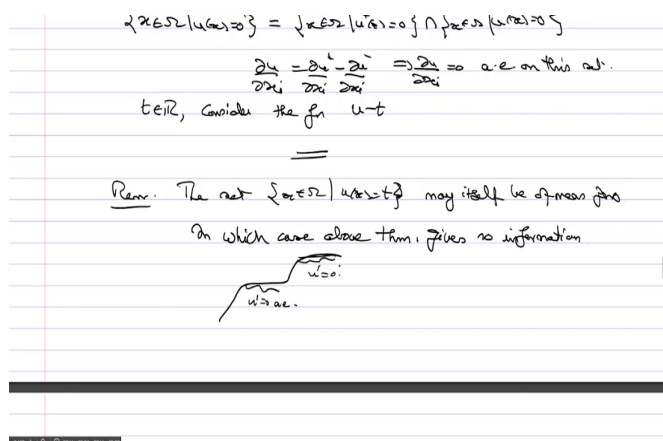 {x∈Ω | u(x)=0} = {x∈Ω | u⁺(x)=0} ∩ {x∈Ω | u⁻(x)=0}
∂u/∂xi = ∂u⁺/∂xi - ∂u⁻/∂xi ⇒ ∂u/∂xi = 0 a.e on this set.
t∈ℝ, Consider the fn u-t
Rem. The set {x∈Ω | u(x)=t} may itself be of meas zero
In which case above thm. gives no information
u'=0.
u'=0 a.e.